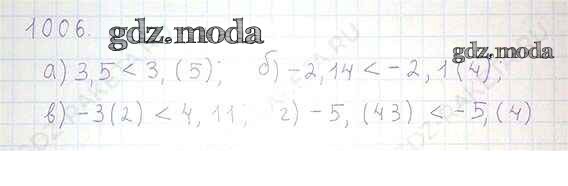 1006. gdz.moda
gdz.moda
а) 3,5 < 3,(5); б) -2,14 < -2,1(4);
в) -3(2) < 4,11; г) -5,(43) < -5,(4)